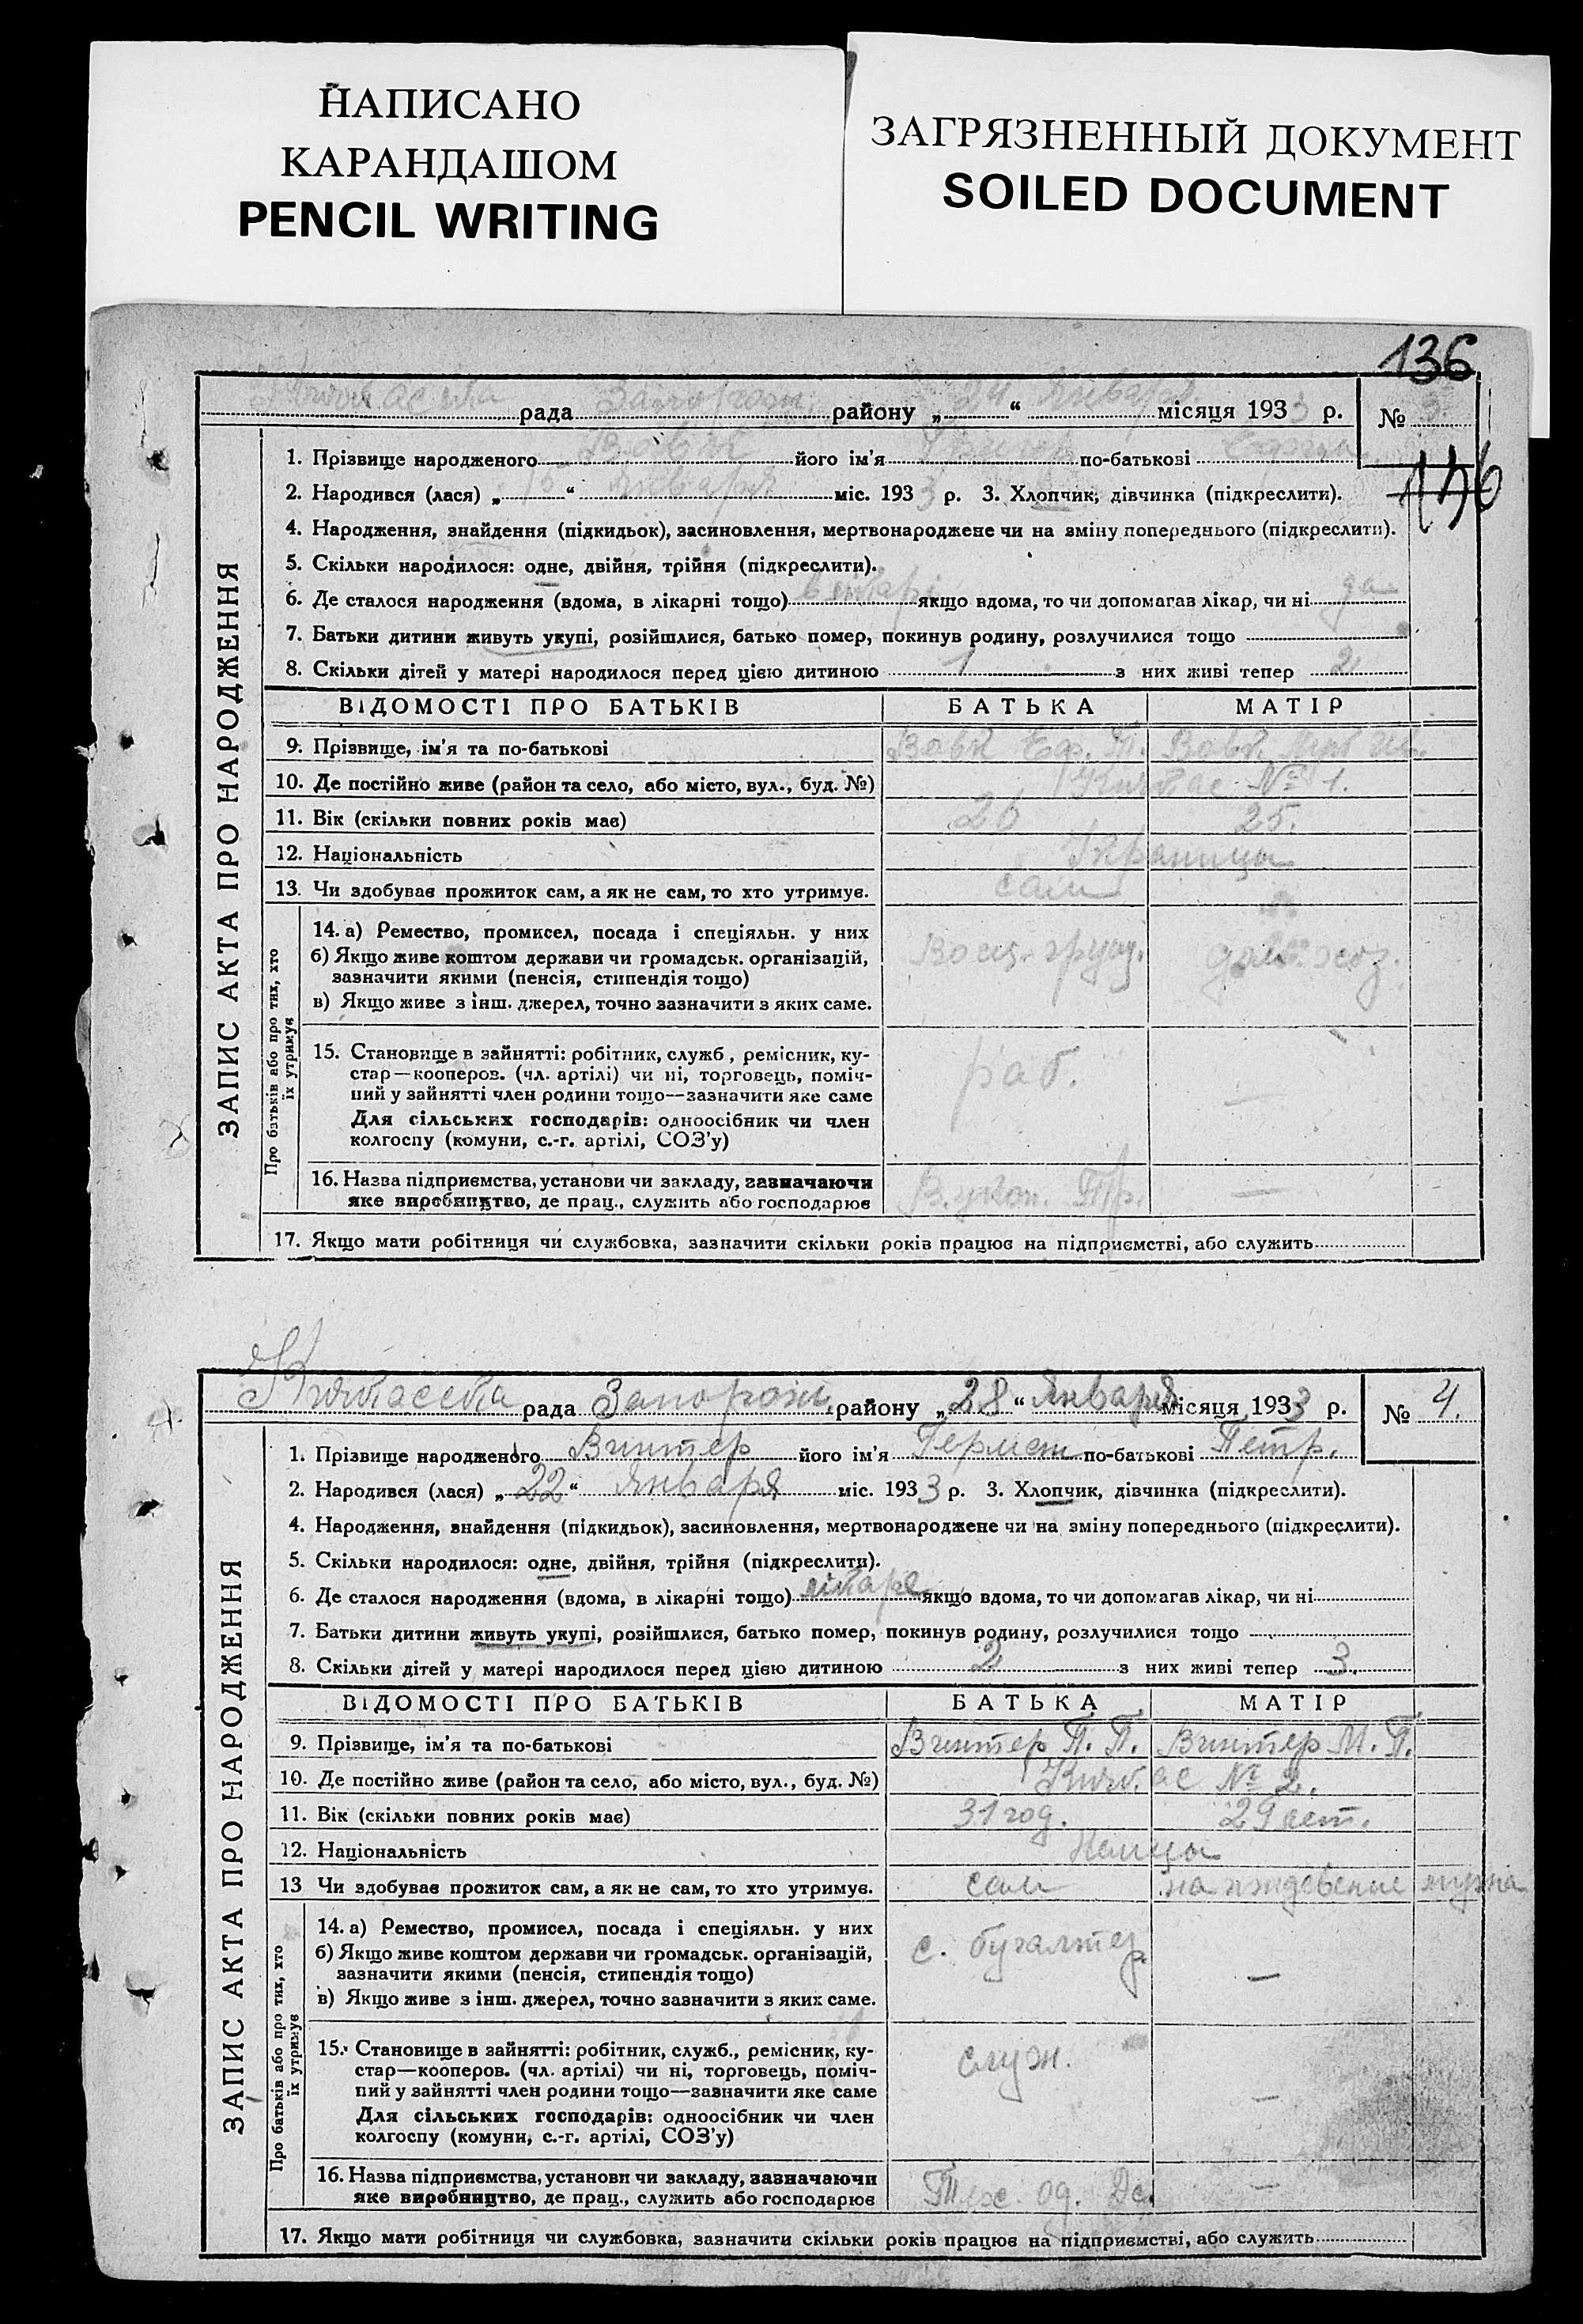 НАПИСАНО
КАРАНДАШОМ
PENCIL WRITING
ЗАГРЯЗНЕННЫЙ ДОКУМЕНТ
SOILED DOCUMENT
136
рада району „ 24 “ Января місяця 1933 р. № 3.
136
ЗАПИС АКТА ПРО НАРОДЖЕННЯ
1. Прізвище народженого його ім'я по-батькові
2. Народився (лася) „ “ Января міс. 1933 р. 3. Хлопчик, дівчинка (підкреслити).
4. Народження, знайдення (підкидьок), засиновлення, мертвонароджене чи на зміну попереднього (підкреслити).
5. Скільки народилося: одне, двійня, трійня (підкреслити).
6. Де сталося народження (вдома, в лікарні тощо) якщо вдома, то чи допомагав лікар, чи ні да
7. Батьки дитини живуть укупі, розійшлися, батько помер, покинув родину, розлучилися тощо
8. Скільки дітей у матері народилося перед цією дитиною 1 з них живі тепер 2
ВІДОМОСТІ ПРО БАТЬКІВ БАТЬКА МАТІР
9. Прізвище, ім'я та по-батькові
10. Де постійно живе (район та село, або місто, вул., буд. №) № 1.
11. Вік (скільки повних років має) 26 25.
12. Національність Украинцы
13. Чи здобував прожиток сам, а як не сам, то хто утримує. сам
Про батьків або про тих, хто їх утримує
14. а) Ремество, промисел, посада і спеціяльн. у них
б) Якщо живе коштом держави чи громадськ. організацій,
зазначити якими (пенсія, стипендія тощо)
в) Якщо живе з інш. джерел, точно зазначити з яких саме.
15. Становище в зайнятті: робітник, служб., ремісник, ку-
стар—кооперов. (чл. артілі) чи ні, торговець, поміч-
ний у зайнятті член родини тощо—зазначити яке саме
раб. —
Для сільських господарів: одноосібник чи член
колгоспу (комуни, с.-г. артілі, СОЗ'у)
16. Назва підприємства, установи чи закладу, зазначаючи
яке виробництво, де прац., служить або господарює —
17. Якщо мати робітниця чи службовка, зазначити скільки років працює на підприємстві, або служить
рада Запорож. району „28“ Января місяця 1933 р. № 4.
ЗАПИС АКТА ПРО НАРОДЖЕННЯ
1. Прізвище народженого Винтер його ім'я по-батькові Петр.
2. Народився (лася) „22“ Января міс. 1933 р. 3. Хлопчик, дівчинка (підкреслити).
4. Народження, знайдення (підкидьок), засиновлення, мертвонароджене чи на зміну попереднього (підкреслити).
5. Скільки народилося: одне, двійня, трійня (підкреслити).
6. Де сталося народження (вдома, в лікарні тощо) якщо вдома, то чи допомагав лікар, чи ні
7. Батьки дитини живуть укупі, розійшлися, батько помер, покинув родину, розлучилися тощо
8. Скільки дітей у матері народилося перед цією дитиною 2 з них живі тепер 3.
ВІДОМОСТІ ПРО БАТЬКІВ БАТЬКА МАТІР
9. Прізвище, ім'я та по-батькові Винтер П. П. Винтер М. П.
10. Де постійно живе (район та село, або місто, вул., буд. №) № 2.
11. Вік (скільки повних років має) 31 год. 29 лет.
12. Національність Немцы
13 Чи здобував прожиток сам, а як не сам, то хто утримує. сам на мужа
Про батьків або про тих, хто їх утримує
14. а) Ремество, промисел, посада і спеціяльн. у них
б) Якщо живе коштом держави чи громадськ. організацій,
зазначити якими (пенсія, стипендія тощо)
с. бугалтер —
в) Якщо живе з інш. джерел, точно зазначити з яких саме.
15. Становище в зайнятті: робітник, служб., ремісник, ку-
стар—кооперов. (чл. артілі) чи ні, торговець, поміч-
ний у зайнятті член родини тощо—зазначити яке саме
служ. —
Для сільських господарів: одноосібник чи член
колгоспу (комуни, с.-г. артілі, СОЗ'у)
16. Назва підприємства, установи чи закладу, зазначаючи
яке виробництво, де прац., служить або господарює —
17. Якщо мати робітниця чи службовка, зазначити скільки років працює на підприємстві, або служить